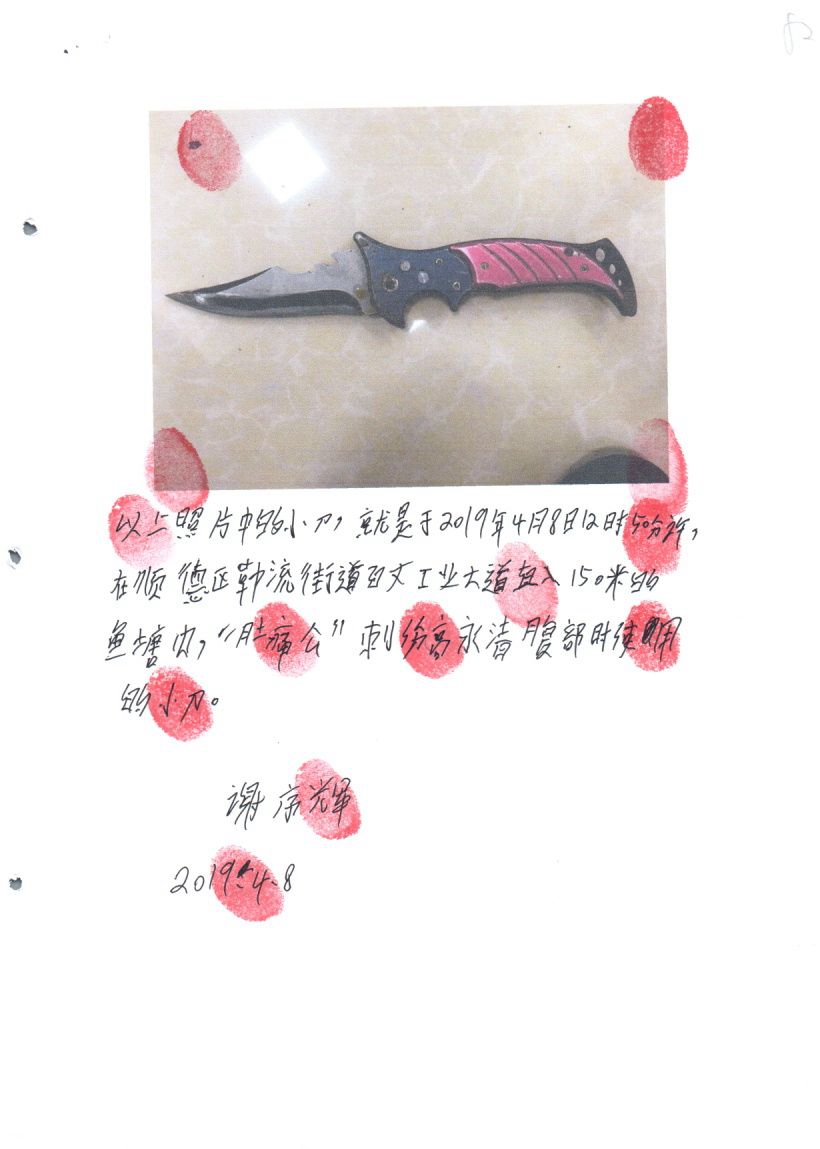 以上照片中的小刀，就是于2019年4月8日12时50分许，
在顺德区勒流街道百丈工业大道直入150米的
鱼塘内，“肚痛公”刺高永清腹部时使用
的小刀。
谢 辉
2019.4.8